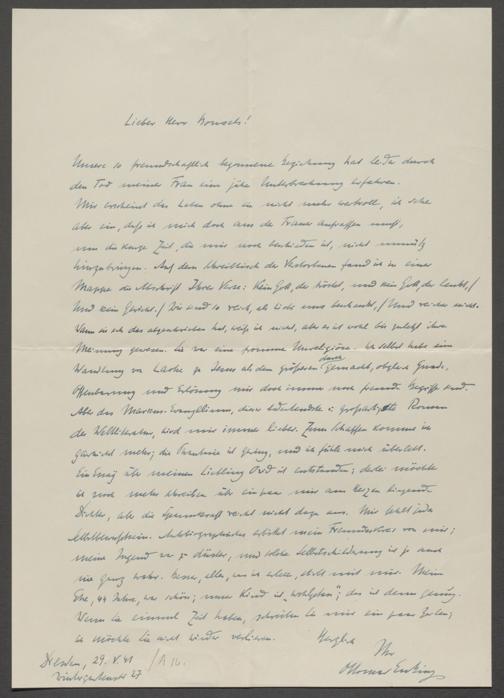 Lieber Herr Bonsels!
Unsere so freundschaftlich begonnene Beziehung hat leider durch
den Tod meiner Frau eine jähe Unterbrechung erfahren.
Mir erscheint das Leben ohne sie nicht mehr wertvoll, ich sehe
aber ein, daß ich mich doch aus der Trauer aufraffen muß,
um die kurze Zeit, die mir noch beschieden ist, nicht unnütz
hinzubringen. Auf dem Schreibtisch der Verstorbenen fand ich in einer
Mappe die Abschrift Ihrer Verse: Kein Gott, der tröstet, und kein Gott, der lenkt,/
Und kein Gericht./ Wir sind so reich, als Liebe uns beschenkt,/ Und reicher nicht.
Wann sie sich das abgeschrieben hat, weiß ich nicht, aber es ist wohl bis zuletzt ihre
Meinung gewesen. Sie war eine fromme Unreligiöse. Ich selbst habe eine
Wandlung von zu Jesus als dem größeren durchgemacht, obgleich Gnade,
Offenbarung und Erlösung mir doch immer noch fremde Begriffe sind.
Aber das Markus-Evangelium, dieser bedeutendste und großartigste Roman
der Weltliteratur, wird mir immer lieber. Zum Schaffen komme ich
gar nicht mehr; die ist gering, und ich fühle mich überlebt.
Ein Essay über meinen Liebling Ovid ist entstanden; dabei möchte
ich noch mehr schreiben über ein paar mir am Herzen liegende
Dichter, aber die Spannkraft reicht nicht dazu aus. Mir fehlt jede
Autobiographisches erbittet mein Freundeskreis von mir;
meine Jugend war zu düster, und solche Selbstschilderung ist ja auch
nie ganz wahr. Besser, alles, was ich erlebte, stirbt mit mir. Meine
Ehe, 44 Jahre, war schön; unser Kind ist „wohlgeraten"; das ist denn genug.
Wenn Sie einmal Zeit haben, schreiben Sie mir ein paar Zeilen;
ich möchte Sie nicht wieder verlieren. Herzlich
Ihr
Ottomar Enking
Dresden, 29. V. 41 / A 16.
27